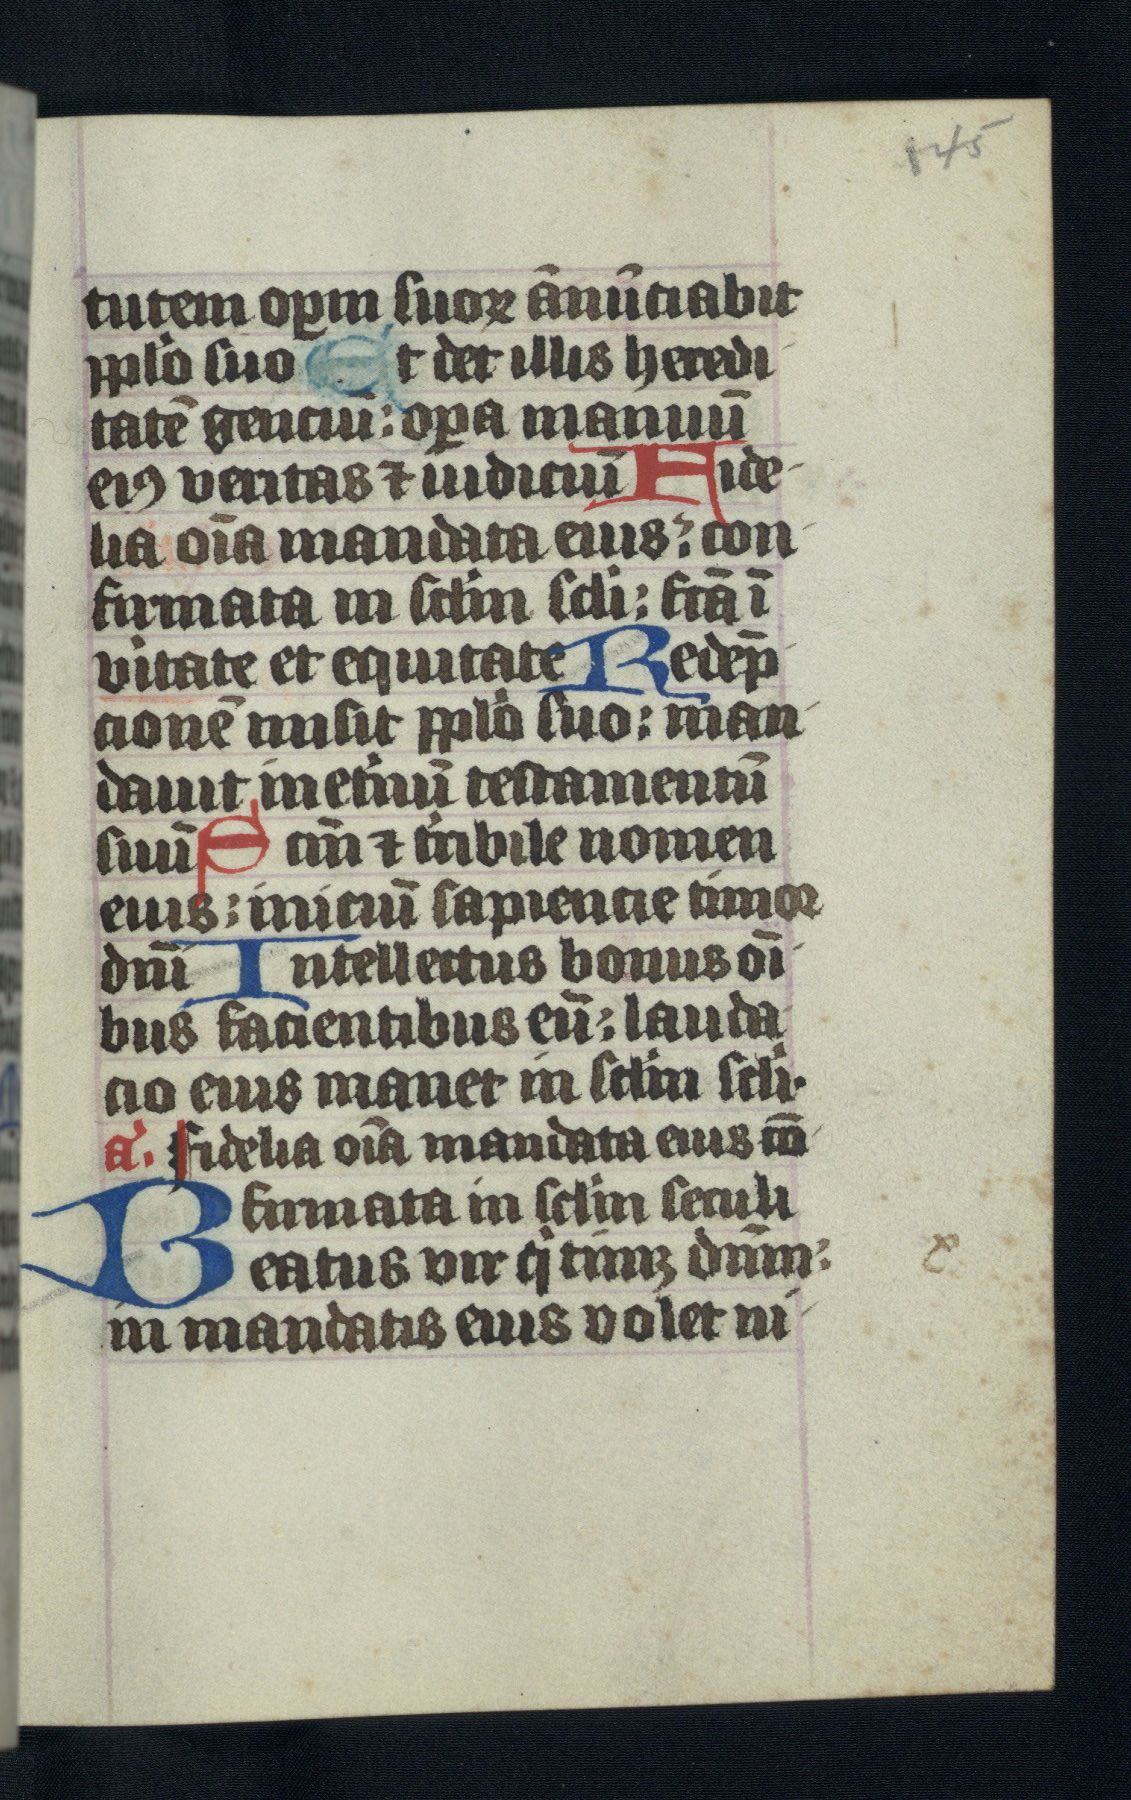 145
tutem oꝑm suoꝝ ānūciabit
pplo suo Et det illis heredi
tatē genciū: oꝑa manuū
eiꝰ veritas ⁊ iudiciū Fide
lia oīa mandata eius: con
firmata in sclm scli: fcā ī
vitate et equitate Redēp
cionē misit pplo suo: man
dauit in etnū testamentū
suū Scm̄ ⁊ tribile nomen
eius: iniciū sapiencie timor
dnī Intellectus bonus oī
bus facientibus eū: lauda
cio eius manet in sclm scli.
a. Fidelia oīa mandata eius cō
firmata in sclm seculi
Beatus vir q timꝫ dnm̄:
in mandatis eius volet ni